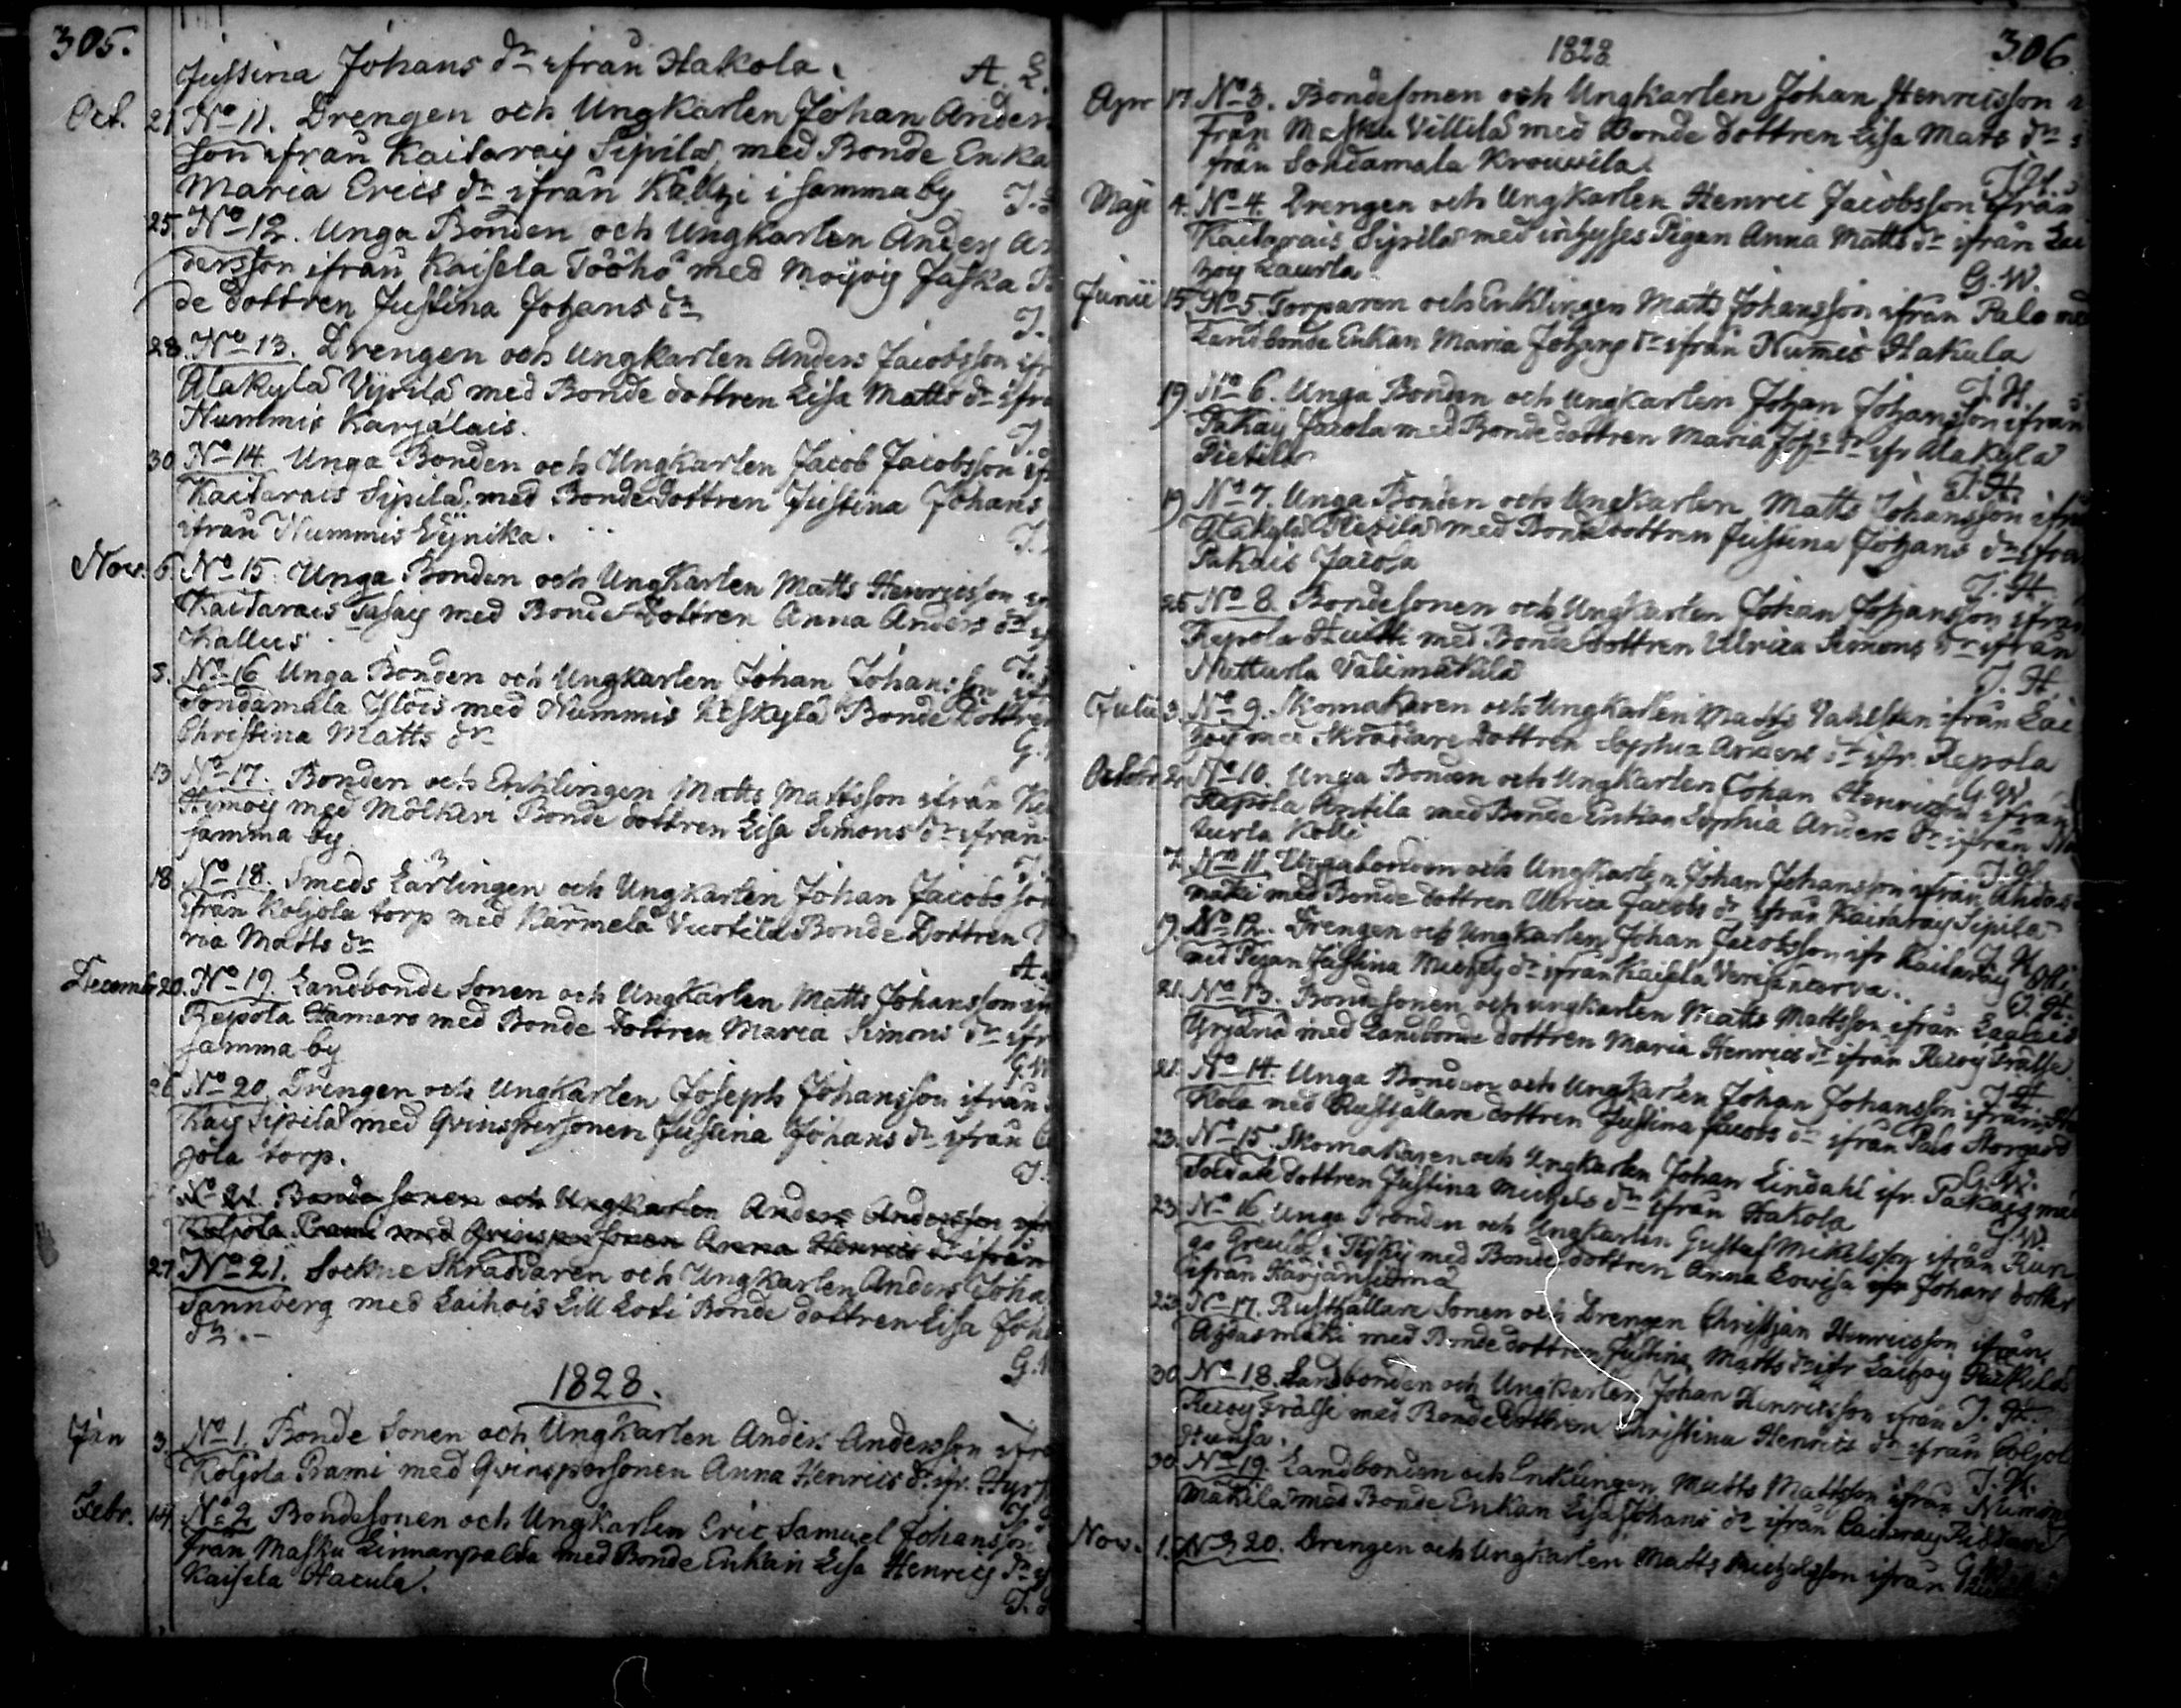 305.
Justina Johans dr ifrån Hakola. A. L.
Oct. 21 No 11. Drengen och Ungkarlen Johan Anders
son ifrån Kaitarais Sipilä, med Bonde Enka
Maria Erics dr ifrån Källzi i samma by
25. No 12. Unga Bonden och Ungkarlen Anders An
dersson ifrån Kaisela Tööhö med Moisio Jaska B
de dottren Justina Johans dr
28. No 13. Drengen och Ungkarlen Anders Jacobsson ifr
Alakylä Vijnilä med Bonde dottren Lisa Matts dr ifrå
Nummis Karjalais.
30 No 14. Unga Bonden och Ungkarlen Jacob Jacobsson if
Kaitarais Sipilä, med Bonde dottren Justina Johans
ifrån Nummis Lijnika.
Nov. 6. No 15. Unga Bonden och Ungkarlen Matts Henricsson
Kaitarais med Bonde Dottren Anna Anders dr
Kallus
8. No 16 Unga Bonden och Ungkarlen Johan Johansson if
med Nummis Uskylä Bonde Dottren
Christina Matts dr
13 No 17. Bonden och Enklingen Matts Mattsson ifrån
med Mölkäri Bonde dottren Lisa Simons dr ifrån
samma by.
18 No 18. Smeds Lärlingen och Ungkarlen Johan Jacobsson
ifrån Koljola torp med Karmela Vuotila Bonde Dottren
ria Matts dr
December 20. No 19. Landbonde Sonen och Ungkarlen Matts Johansson
Repola Hamaro med Bonde dottren Maria Simons dr ifr
samma by
26 No 20. Drengen och Ungkarlen Joseph Johansson ifrån
Kais Sipilä med Qvinspersonen Justina Johans dr ifrån
jola torp.
No 21. Bonde Sonen och Ungkarlen Anders Andersson ifr
Koljola Prami med Qvinspersonen Anna Henrics dr ifrån
27 No 21. Sockne Skräddaren och Ungkarlen Anders Joha
Tannberg med Laihois Lill Loti Bonde dottren Lisa Joh
dr. -
1828.
Jan 3. No 1. Bonde Sonen och Ungkarlen Anders Andersson ifrå
Koljola Prami med Qvinspersonen Anna Henrics dr ifr.
Febr. 14. No 2 Bondesonen och Ungkarlen Eric Samuel Johansson
från Masku Linnanpalda med Bonde Enkan Lisa Henrics dr
Kaisela Hacula.
1828 306
Apr 17. No 3. Bondesonen och Ungkarlen Johan Henricsson
från Masku Villilä med Bonde dottren Lisa Mats dr
från Sondamala Krouvila.
J. H.
Maji 4. No 4. Drengen och Ungkarlen Henric Jacobsson ifrån
Kaitarais Sipilä med inhyses Pigan Anna Matts dr ifrån Lai
hois Laurla
G. W.
Junii 15. No 5. Torparen och Enklingen Matts Johansson ifrån Palo med
Landbonde Enkan Maria Johans dr ifrån Numis Hakula
J. H.
19 No 6. Unga Bonden och Ungkarlen Johan Johansson ifrån
Pakais Jacola med Bonde dottren Maria Johs dr ifr Alakylä
Pietilä
J. H.
19 No 7. Unga Bonden och Ungkarlen Matts Johansson ifrån
Alakylä Pietilä med Bonde dottren Justina Johans dr ifrån
Pakais Jacola
J. H.
25 No 8. Bondesonen och Ungkarlen Johan Johansson ifrån
Repola Huitti med Bonde dottren Ulrica Simons dr ifrån
Nutturla Välimäkilä
J. H.
Julii 3. No 9. Skomakaren och Ungkarlen Matts Vahlsten ifrån Lai
hois med Skräddare dottren Sophia Anders dr ifr. Repola
G. W.
October 2. No 10. Unga Bonden och Ungkarlen Johan Henricsson ifrån
Repola Antila med Bonde Enkan Sophia Anders dr ifrån
turla Kolli
J. H.
7. No 11. Unga bonden och Ungkarlen Johan Johansson ifrån Ahdas
mäki med Bonde dottren Ulrica Jacobs dr ifrån Kaitarais Sipilä
J. H.
9. No 12. Drengen och Ungkarlen Johan Jacobsson ifr Kaitarais
med Pigan Justina Michels dr ifrån Kaisela
J. H.
21. No 13. Bondesonen och ungkarlen Matts Mattsson ifrån
med Landbonde dottren Maria Henrics dr ifrån Frälse.
J. H.
21. No 14. Unga Bonden och Ungkarlen Johan Johansson ifrån Ha
kola med Rusthållare dottren Justina Jacobs dr ifrån Palo Storgård
G. W.
23. No 15. Skomakaren och Ungkarlen Johan Lindahl ifr. Pakais med
Soldate dottren Justina Michels dr ifrån Hakola
G. W.
23 No 16. Unga Bonden och Ungkarlen Gustaf Mikelsson ifrån Run
go i med Bonde dottren Anna Lovisa Johans dotter
ifrån
23. No 17. Rusthållare Sonen och Drengen Christian Henricsson ifrån
Ahdasmäki med Bonde dottren Justina Matts dr ifr Laihois
J. H.
30 No 18. Landbonden och Ungkarlen Johan Henricsson ifrån
Frälse med Bonde Dottren Christina Henrics dr ifrån Coljol
Hansa.
J. H.
30 No 19. Landbonden och Enklingen Matts Mattsson ifrån
Mäkilä med Bonde Enkan Lisa Johans dr ifrån Caitarais
Nov. 1. No 20. Drengen och Ungkarlen Matts Michelsson ifrån